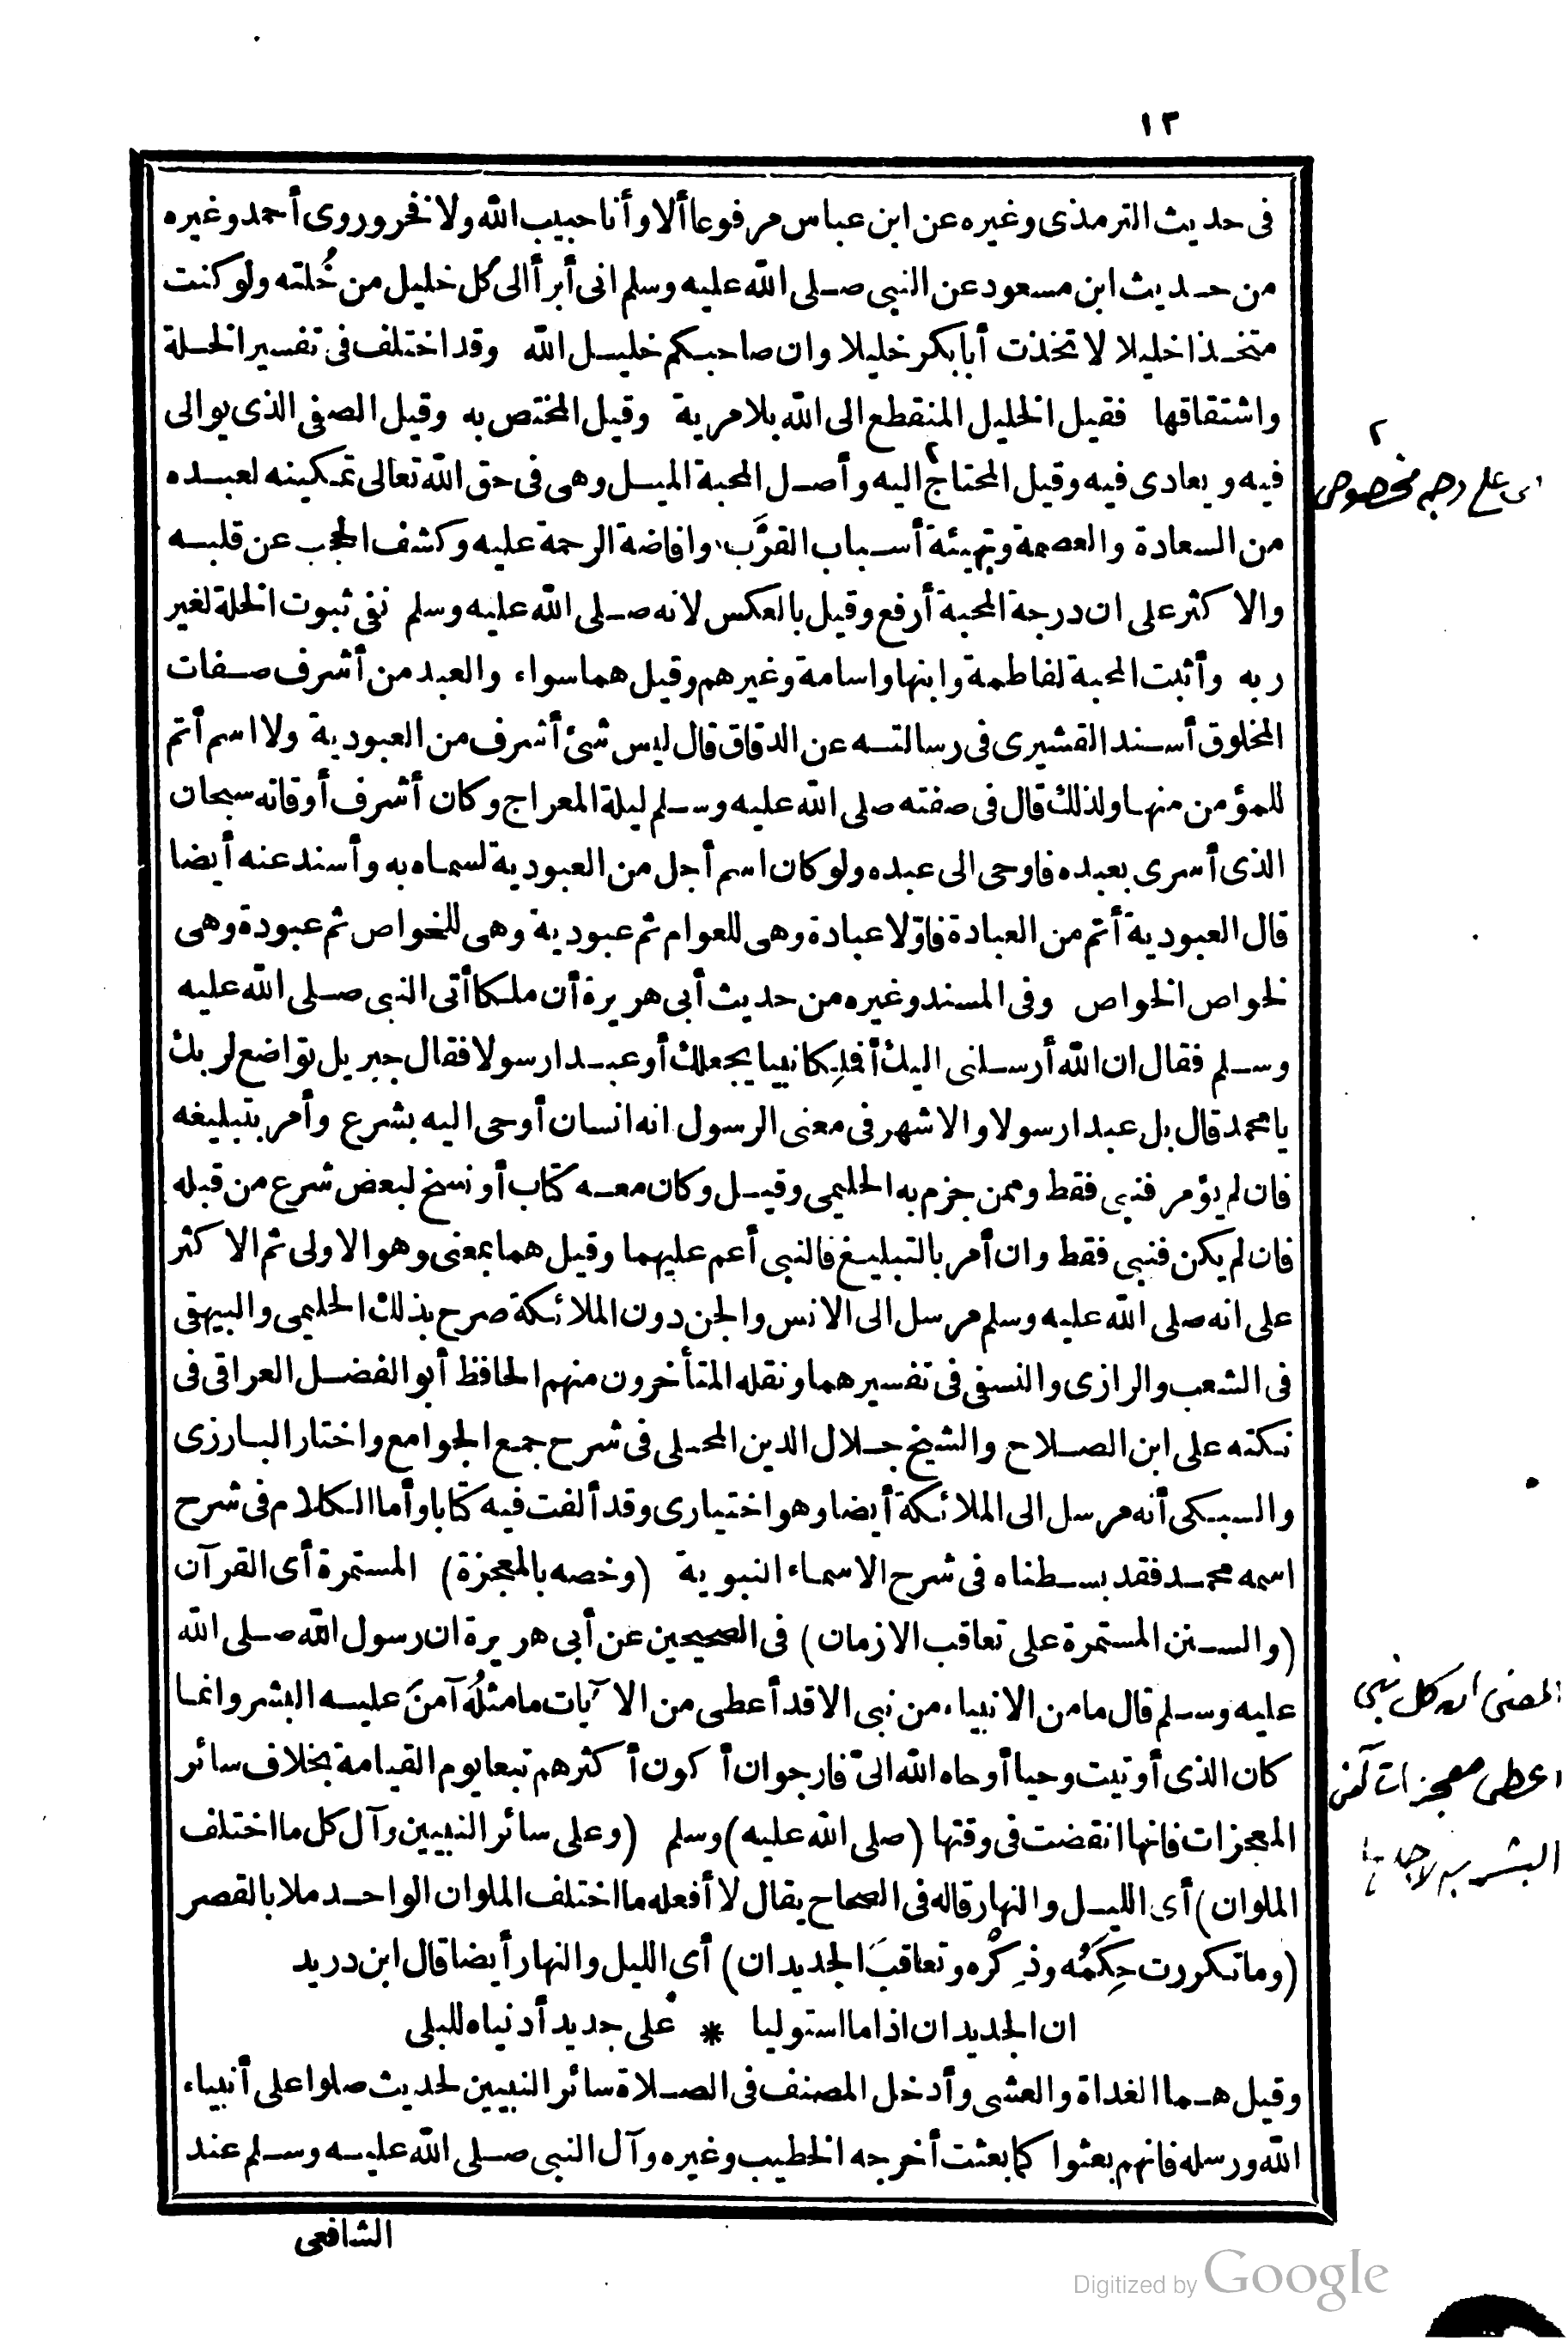 ١٢
فى حديث الترمذى وغيره عن ابن عباس مرفوعا ألا وأنا حبيب الله ولا فخر وروى أحمد وغيره
من حديث ابن مسعود عن النبى صلى الله عليه وسلم انى أبرأ الى كل خليل من خُلته ولو كنت
متخذا خليلا لاتخذت أبا بكر خليلا وان صاحبكم خليل الله وقد اختلف فى تفسير الخلة
واشتقاقها فقيل الخليل المنقطع الى الله بلا مرية وقيل المختص به وقيل الصفى الذى يوالى
فيه ويعادى فيه وقيل المحتاج٢ اليه وأصل المحبة الميل وهى فى حق الله تعالى تمكينه لعبده
من السعادة والعصمة وتهيئة أسباب القرَب وافاضة الرحمة عليه وكشف الحجب عن قلبه
والاكثر على ان درجة المحبة أرفع وقيل بالعكس لانه صلى الله عليه وسلم نفى ثبوت الخلة لغير
ربه وأثبت المحبة لفاطمة وابنها واسامة وغيرهم وقيل هما سواء والعبد من أشرف صفات
المخلوق أسند القشيرى فى رسالته عن الدقاق قال ليس شئ أشرف من العبودية ولا اسم أتم
للمؤمن منها ولذلك قال فى صفته صلى الله عليه وسلم ليلة المعراج وكان أشرف أوقاته سبحان
الذى أسرى بعبده فاوحى الى عبده ولو كان اسم أجل من العبودية لسماه به وأسند عنه أيضا
قال العبودية أتم من العبادة فاوّلا عبادة وهى للعوام ثم عبودية وهى للخواص ثم عبودة وهى
لخواص الخواص وفى المسند وغيره من حديث أبى هريرة أن ملكا أتى النبى صلى الله عليه
وسلم فقال ان الله أرسلنى اليك أفلِكا نبيا يجعلك أو عبدا رسولا فقال جبريل تواضع لربك
يا محمد قال بل عبدا رسولا والاشهر فى معنى الرسول انه انسان أوحى اليه بشرع وأمر بتبليغه
فان لم يؤمر فنبى فقط وممن جزم به الحليمى وقيل وكان معه كتاب أو نسخ لبعض شرع من قبله
فان لم يكن فنبى فقط وان أمر بالتبليغ فالنبى أعم عليهما وقيل هما بمعنى وهو الاولى ثم الاكثر
على انه صلى الله عليه وسلم مرسل الى الانس والجن دون الملائكة صرح بذلك الحليمى والبيهقى
فى الشعب والرازى والنسفى فى تفسيرهما ونقله المتأخرون منهم الحافظ أبو الفضل العراقى فى
نكته على ابن الصلاح والشيخ جلال الدين المحلى فى شرح جمع الجوامع واختار البارزى
والسبكى أنه مرسل الى الملائكة أيضا وهو اختيارى وقد ألفت فيه كتابا وأما الكلام فى شرح
اسمه محمد فقد بسطناه فى شرح الاسماء النبوية (وخصه بالمعجزة) المستمرة أى القرآن
(والسنن المستمرة على تعاقب الازمان) فى الصحيحين عن أبى هريرة ان رسول الله صلى الله
عليه وسلم قال ما من الانبياء من نبى الا قد أعطى من الآيات ما مثلُه آمنَ عليه البشر وانما
كان الذى أوتيت وحيا أوحاه الله الىّ فارجو ان أكون أكثرهم تبعا يوم القيامة بخلاف سائر
المعجزات فانها انقضت فى وقتها (صلى الله عليه) وسلم (وعلى سائر النبيين وآل كل ما اختلف
الملوان) أى الليل والنهار قاله فى الصحاح يقال لا أفعله ما اختلف الملوان الواحد ملا بالقصر
(وما تكررت حِكَمُه وذِكْره وتعاقبَ الجديدان) أى الليل والنهار أيضا قال ابن دريد
ان الجديدان اذا ما استوليا * على جديد أدنياه للبلى
وقيل هما الغداة والعشى وأدخل المصنف فى الصلاة سائر النبيين لحديث صلوا على أنبياء
الله ورسله فانهم بعثوا كما بعثت أخرجه الخطيب وغيره وآل النبى صلى الله عليه وسلم عند
الشافعى
٢
اى على وجه مخصوص
المعنى ان كل نبى
اعطى معجزات آمن
البشر به لاجلها
Digitized by Google